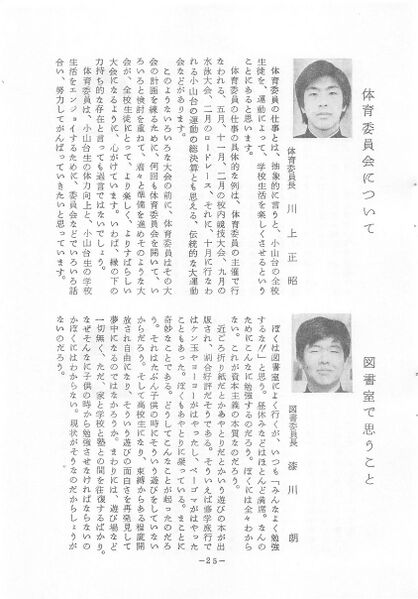 体育委員会について
体育委員長　川上正昭
体育委員の仕事とは、抽象的に言うと、小山台の全校
生徒を、運動によって、学校生活を楽しくさせるという
ことにあると思います。
体育委員の仕事の具体的な例は、体育委員の主催で行
なわれる、五月、十一月、二月の校内競技大会、九月の
水泳大会、二月のロードレース、それに、十月に行なわ
れる小山台の運動の総決算とも思える、伝統的な大運動
会などがあります。
このようないろいろな大会の前に、体育委員はその大
会の計画を練るために、何回も体育委員会を開いて、い
ろいろと検討を重ねて、着々と準備を進めそのような大
会が、全校生徒にとって、より楽しく、よりすばらしい
大会になるように、心がけています。いわば、縁の下の
力持ち的な存在と言っても過言ではないでしょう。
体育委員は、小山台生の体力向上と、小山台生の学校
生活をエンジョイするために、委員会などでいろいろ話
合い、努力してがんばっていきたいと思っています。
図書室で思うこと
図書委員長　漆川　朗
ぼくは図書室によく行くが、いつも「みんなよく勉強
するな//」と思う。昼休みなどはほとんど満席。なんの
ためにこんなに勉強するのだろう。ぼくには全々わから
ない。これが資本主義の本質なのだろう。
近ごろ折り紙だとかあやとりだとかいう遊びの本が出
版され、割合好評だそうである。そういえば修学旅行で
はケン玉やヨーヨーがはやったし、ベーゴマがはやった
こともあった。ぼくもあやとりに凝っている。まことに
奇妙なことである。どうしてこんなことが起ったのだろ
う。それはたぶん子供の時にそういう遊びをしていない
からだろう。そして高校生になり、束縛からある程度開
放され自由になり、そういう遊びの面白さを再発見して
夢中になるのではなかろうか。まわりには、遊び場など
一切無く、ただ、家と学校と塾との間を往復するばかり。
なぜそんなに子供の時から勉強させなければならないの
かぼくにはわからない。現状がそうなのだからしょうが
ないのだろう。
—25—